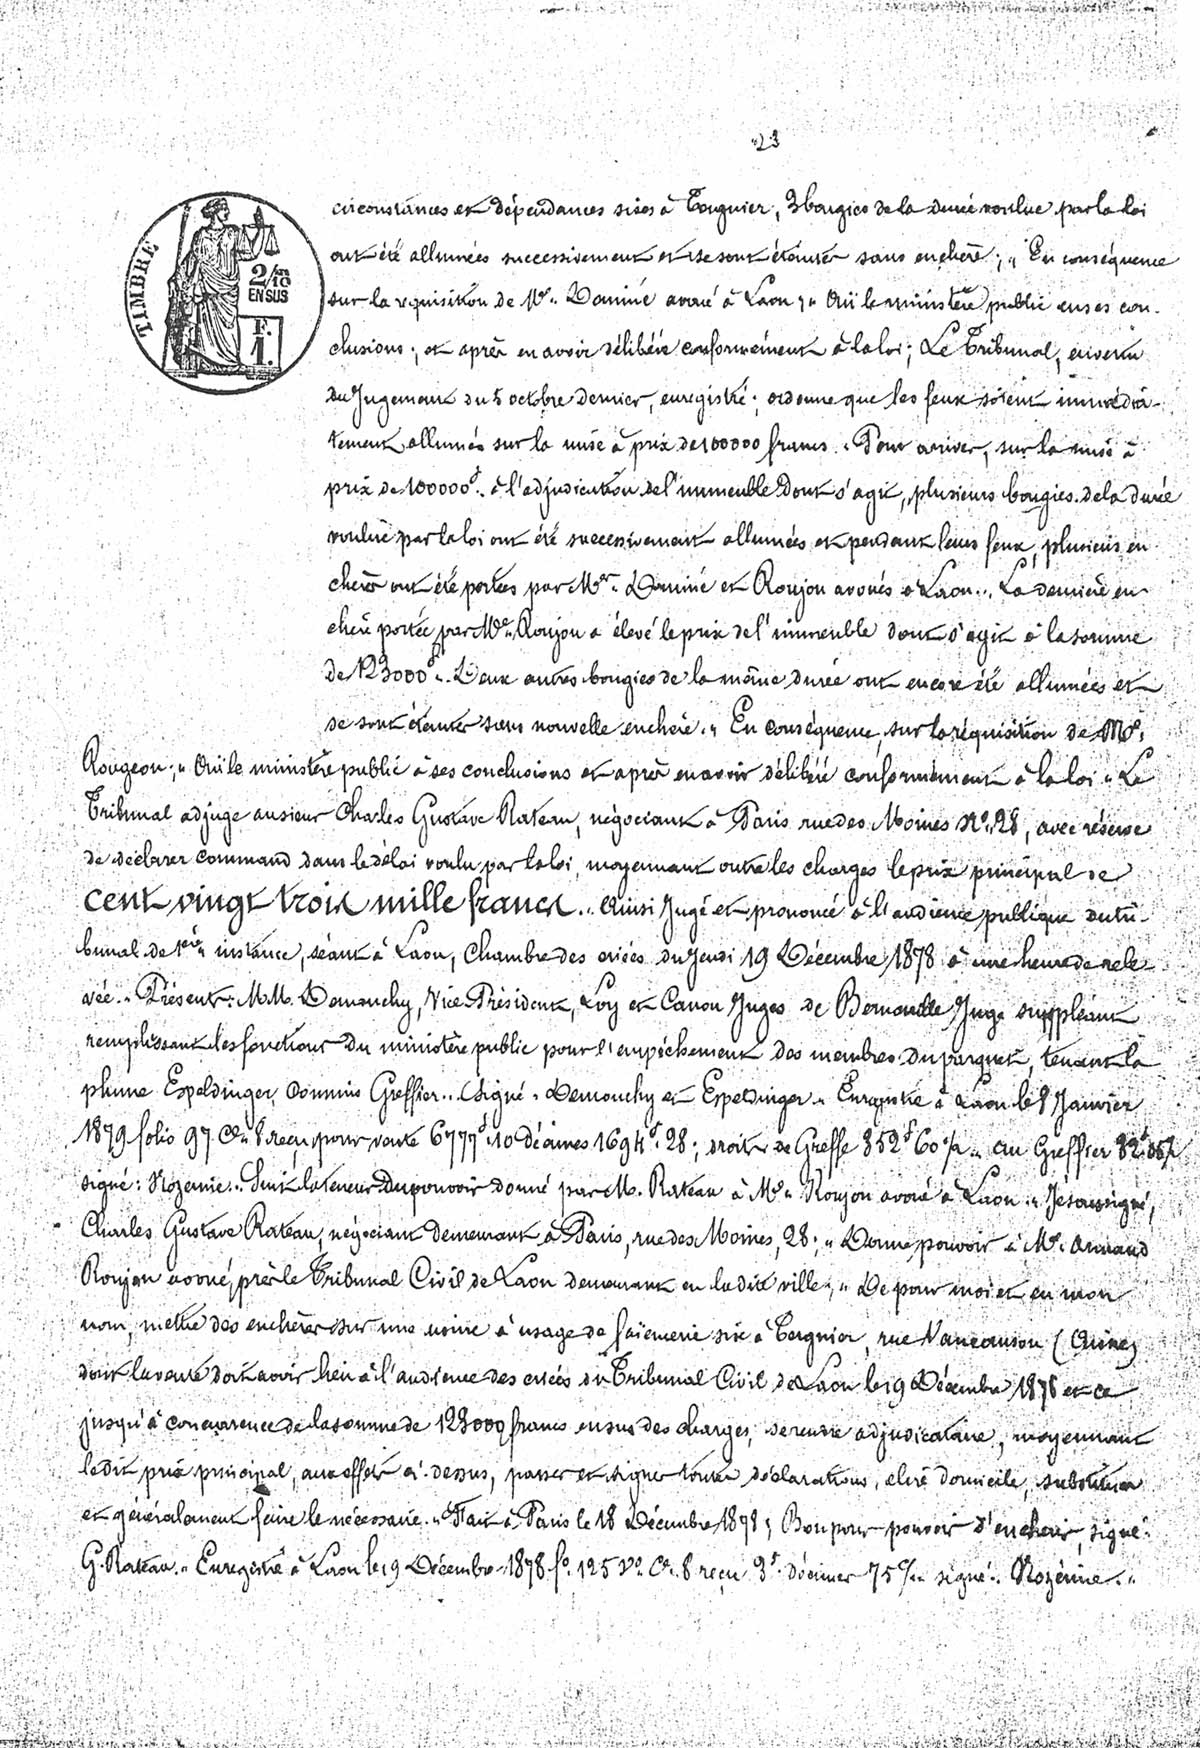 23
TIMBRE
2/10
EN SUS
F.
1.
circonstances et dépendances sises à Tergnier, 3 bougies de la durée voulue par la loi
ont été allumées successivement et se sont éteintes sans enchère; " En conséquence
sur la réquisition de Me " Dominé avoué à Laon; " Ouï le ministère public en ses con-
clusions; et après en avoir délibéré conformément à la loi; Le Tribunal, en vertu
du Jugement du 5 octobre dernier, enregistré; ordonne que les feux soient immédia-
tement allumés sur la mise à prix de 100000 francs. " Pour arriver, sur la mise à
prix de 100000f. à l'adjudication de l'immeuble dont s'agit, plusieurs bougies de la durée
voulue par la loi ont été successivement allumées et pendant leurs feux, plusieurs en-
chères ont été portées par Mes " Dominé et Roujon avoués à Laon. " La dernière en-
chère portée par Me " Roujon a élevé le prix de l'immeuble dont s'agit à la somme
de 123000f. " Deux autres bougies de la même durée ont encore été allumées et
se sont éteintes sans nouvelle enchère. " En conséquence, sur la réquisition de Me
Rougeon; " Ouï le ministère public à ses conclusions et après en avoir délibéré conformément à la loi " Le
Tribunal adjuge au sieur Charles Gustave Rateau, négociant à Paris rue des Moines No 28, avec réserve
de déclarer command dans le délai voulu par la loi, moyennant outre les charges le prix principal de
cent vingt trois mille francs. " Ainsi Jugé et prononcé à l'audience publique du tri-
bunal de 1ère instance, séant à Laon, Chambre des criées du Jeudi 19 Décembre 1878 à une heure de rele-
vée. " Présents: M.M. Demonchy, Vice Président, Loy et Canon Juges de Bernoville Juge suppléant
remplissant les fonctions du ministère public pour l'empêchement des membres du parquet, tenant la
plume Espeldinger, Commis Greffier. " Signé " Demonchy et Espeldinger " Enregistré à Laon le 8 Janvier
1879 folio 97 Ce 8 reçu pour vente 6777f. 10 décimes 1694f. 28; droits de Greffe 352f 60 % " au Greffier 32f.
signé: Rozérine. " Suit la teneur du pouvoir donné par M. Rateau à Me " Roujon avoué à Laon " Je soussigné,
Charles Gustave Rateau, négociant demeurant à Paris, rue des Moines, 28; " Donne pouvoir à Me Armand
Roujon avoué, près le Tribunal Civil de Laon demeurant en ladite ville; " De pour moi et en mon
nom, mettre des enchères sur une usine à usage de faïencerie sise à Tergnier, rue Vaucanson (Aisne)
dont la vente doit avoir lieu à l'audience des criées du Tribunal Civil de Laon le 19 Décembre 1878 et ce
jusqu'à concurrence de la somme de 123000 francs en sus des charges, se rendre adjudicataire, moyennant
ledit prix principal, aux effets ci-dessus, passer et signer toutes déclarations, élire domicile, substituer
et généralement faire le nécessaire. " Fait à Paris le 18 Décembre 1878; Bon pour pouvoir d'enchérir, signé:
G. Rateau. " Enregistré à Laon le 19 Décembre 1878 fo. 125 Vo. Ce. 8 reçu 3f. décimes 75 c/m signé: Rozérine. "